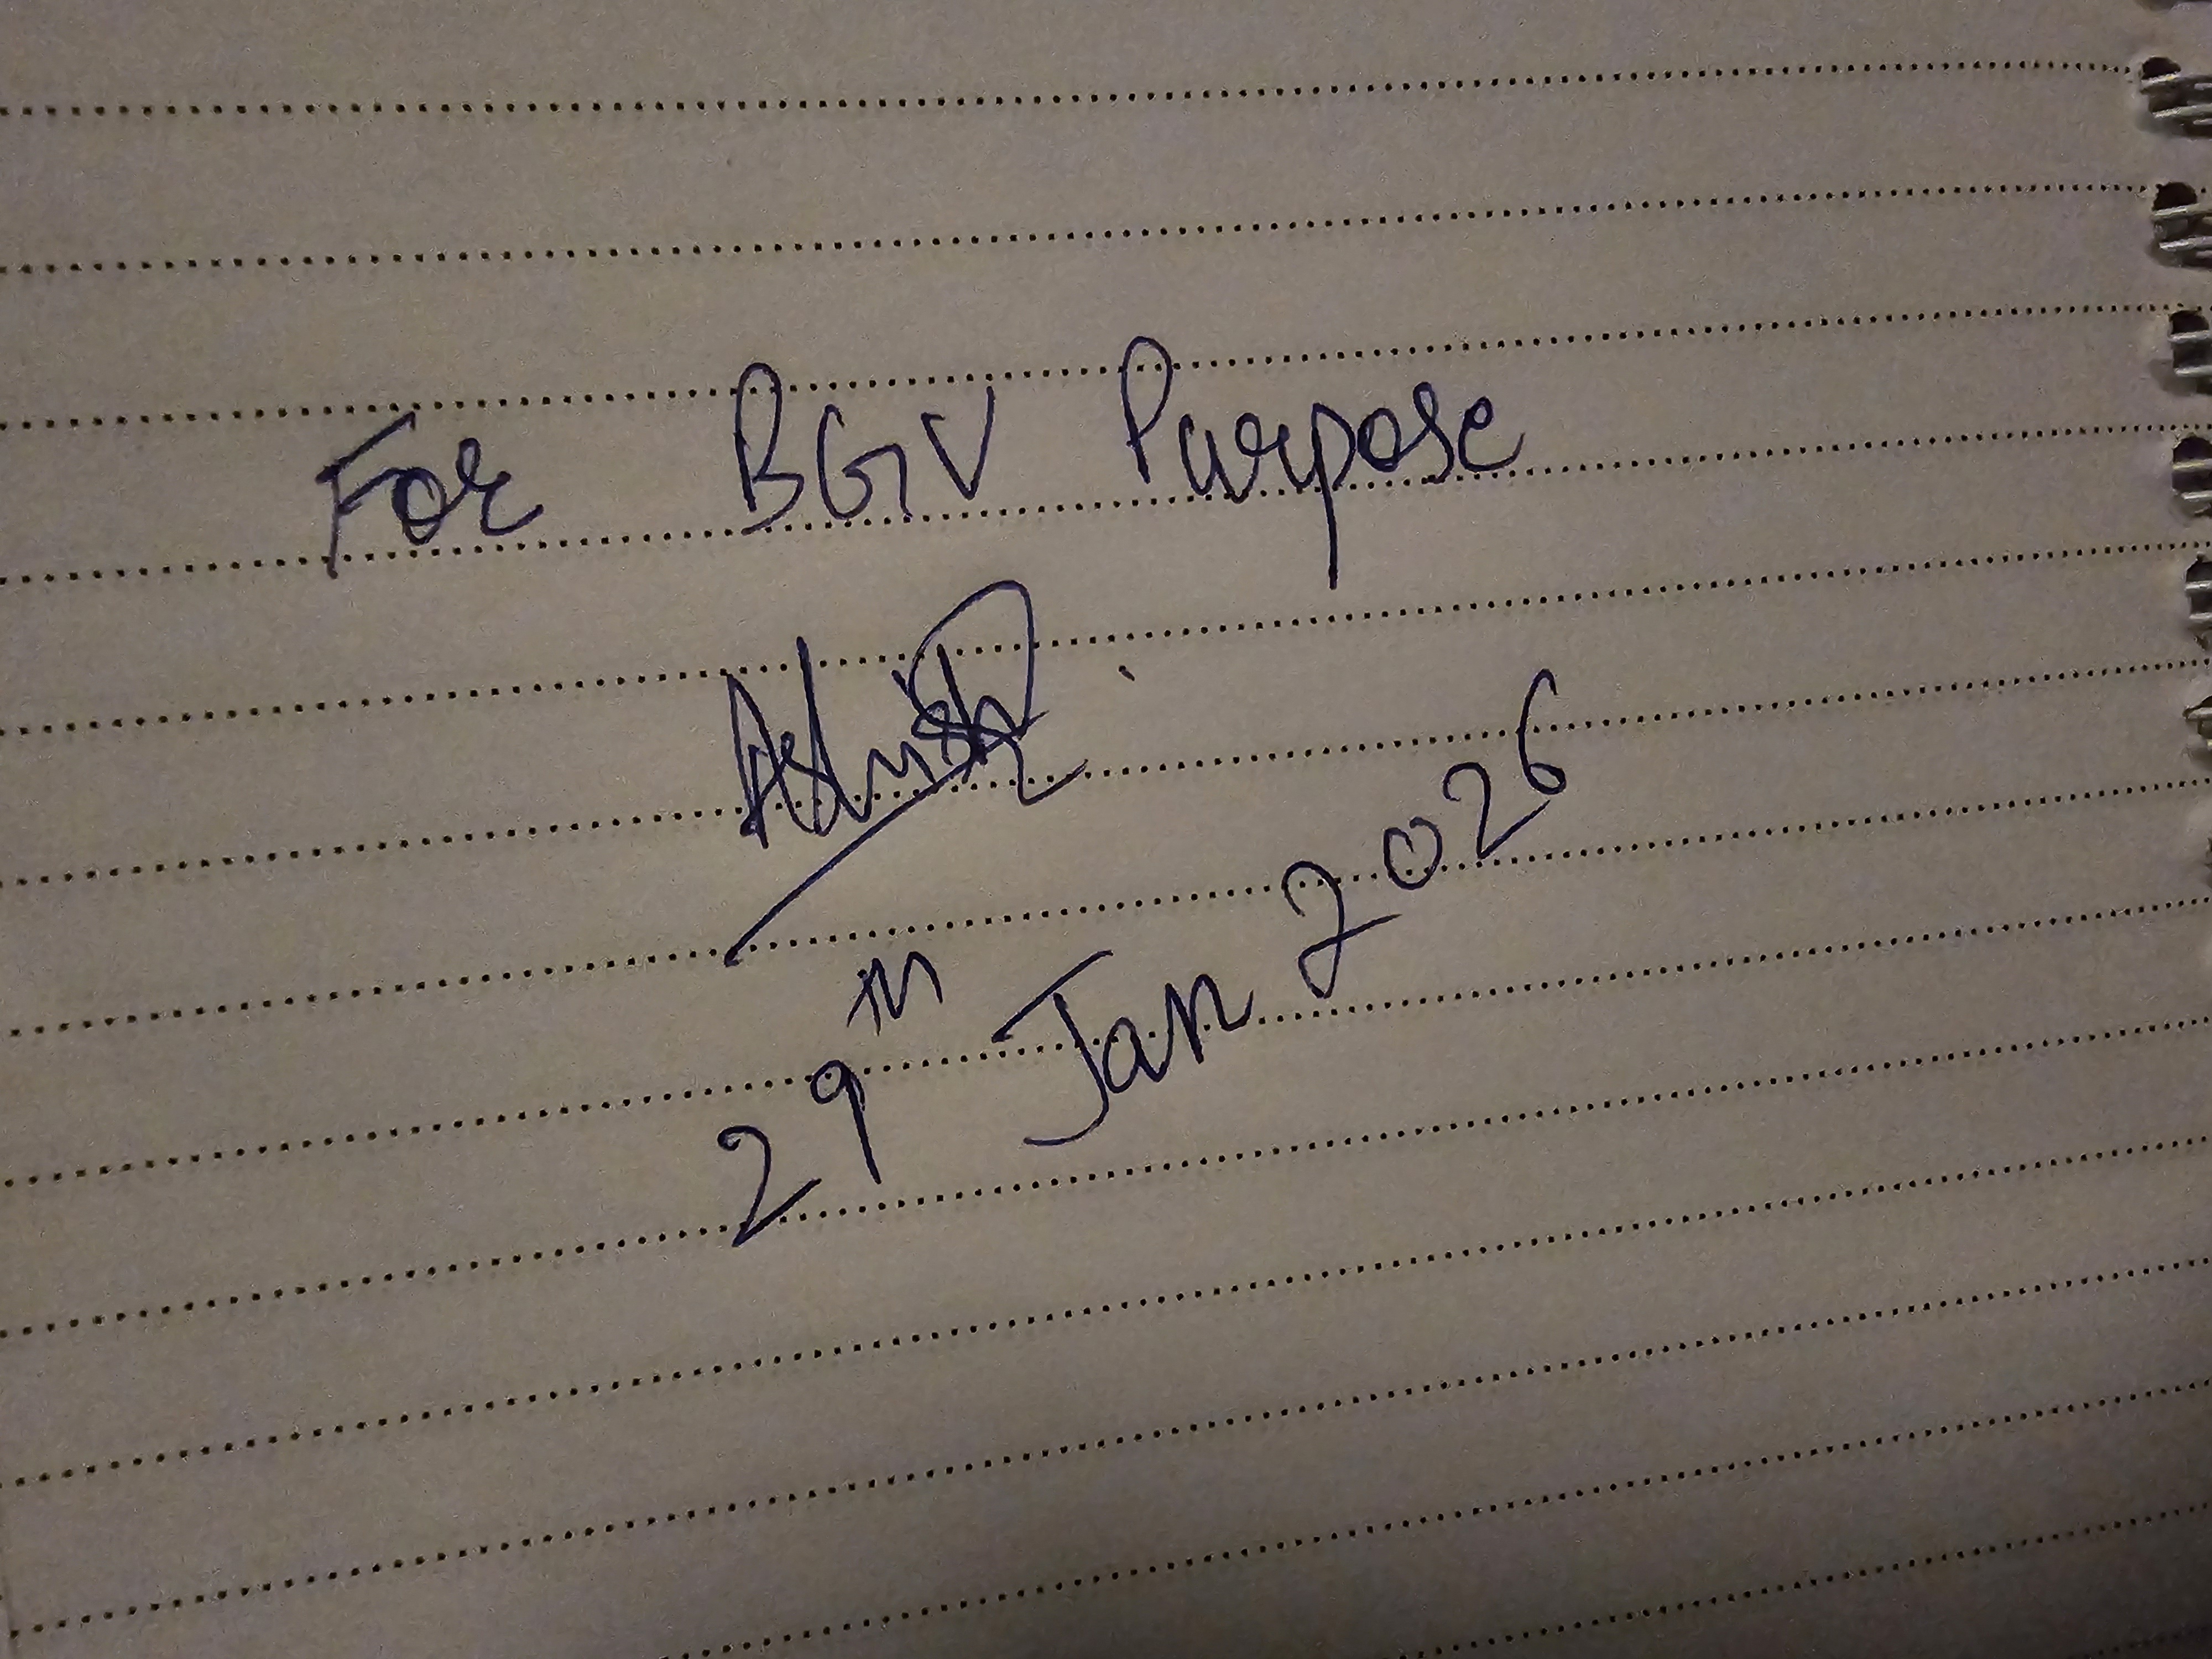 For BGV Purpose
29th Jan 2026